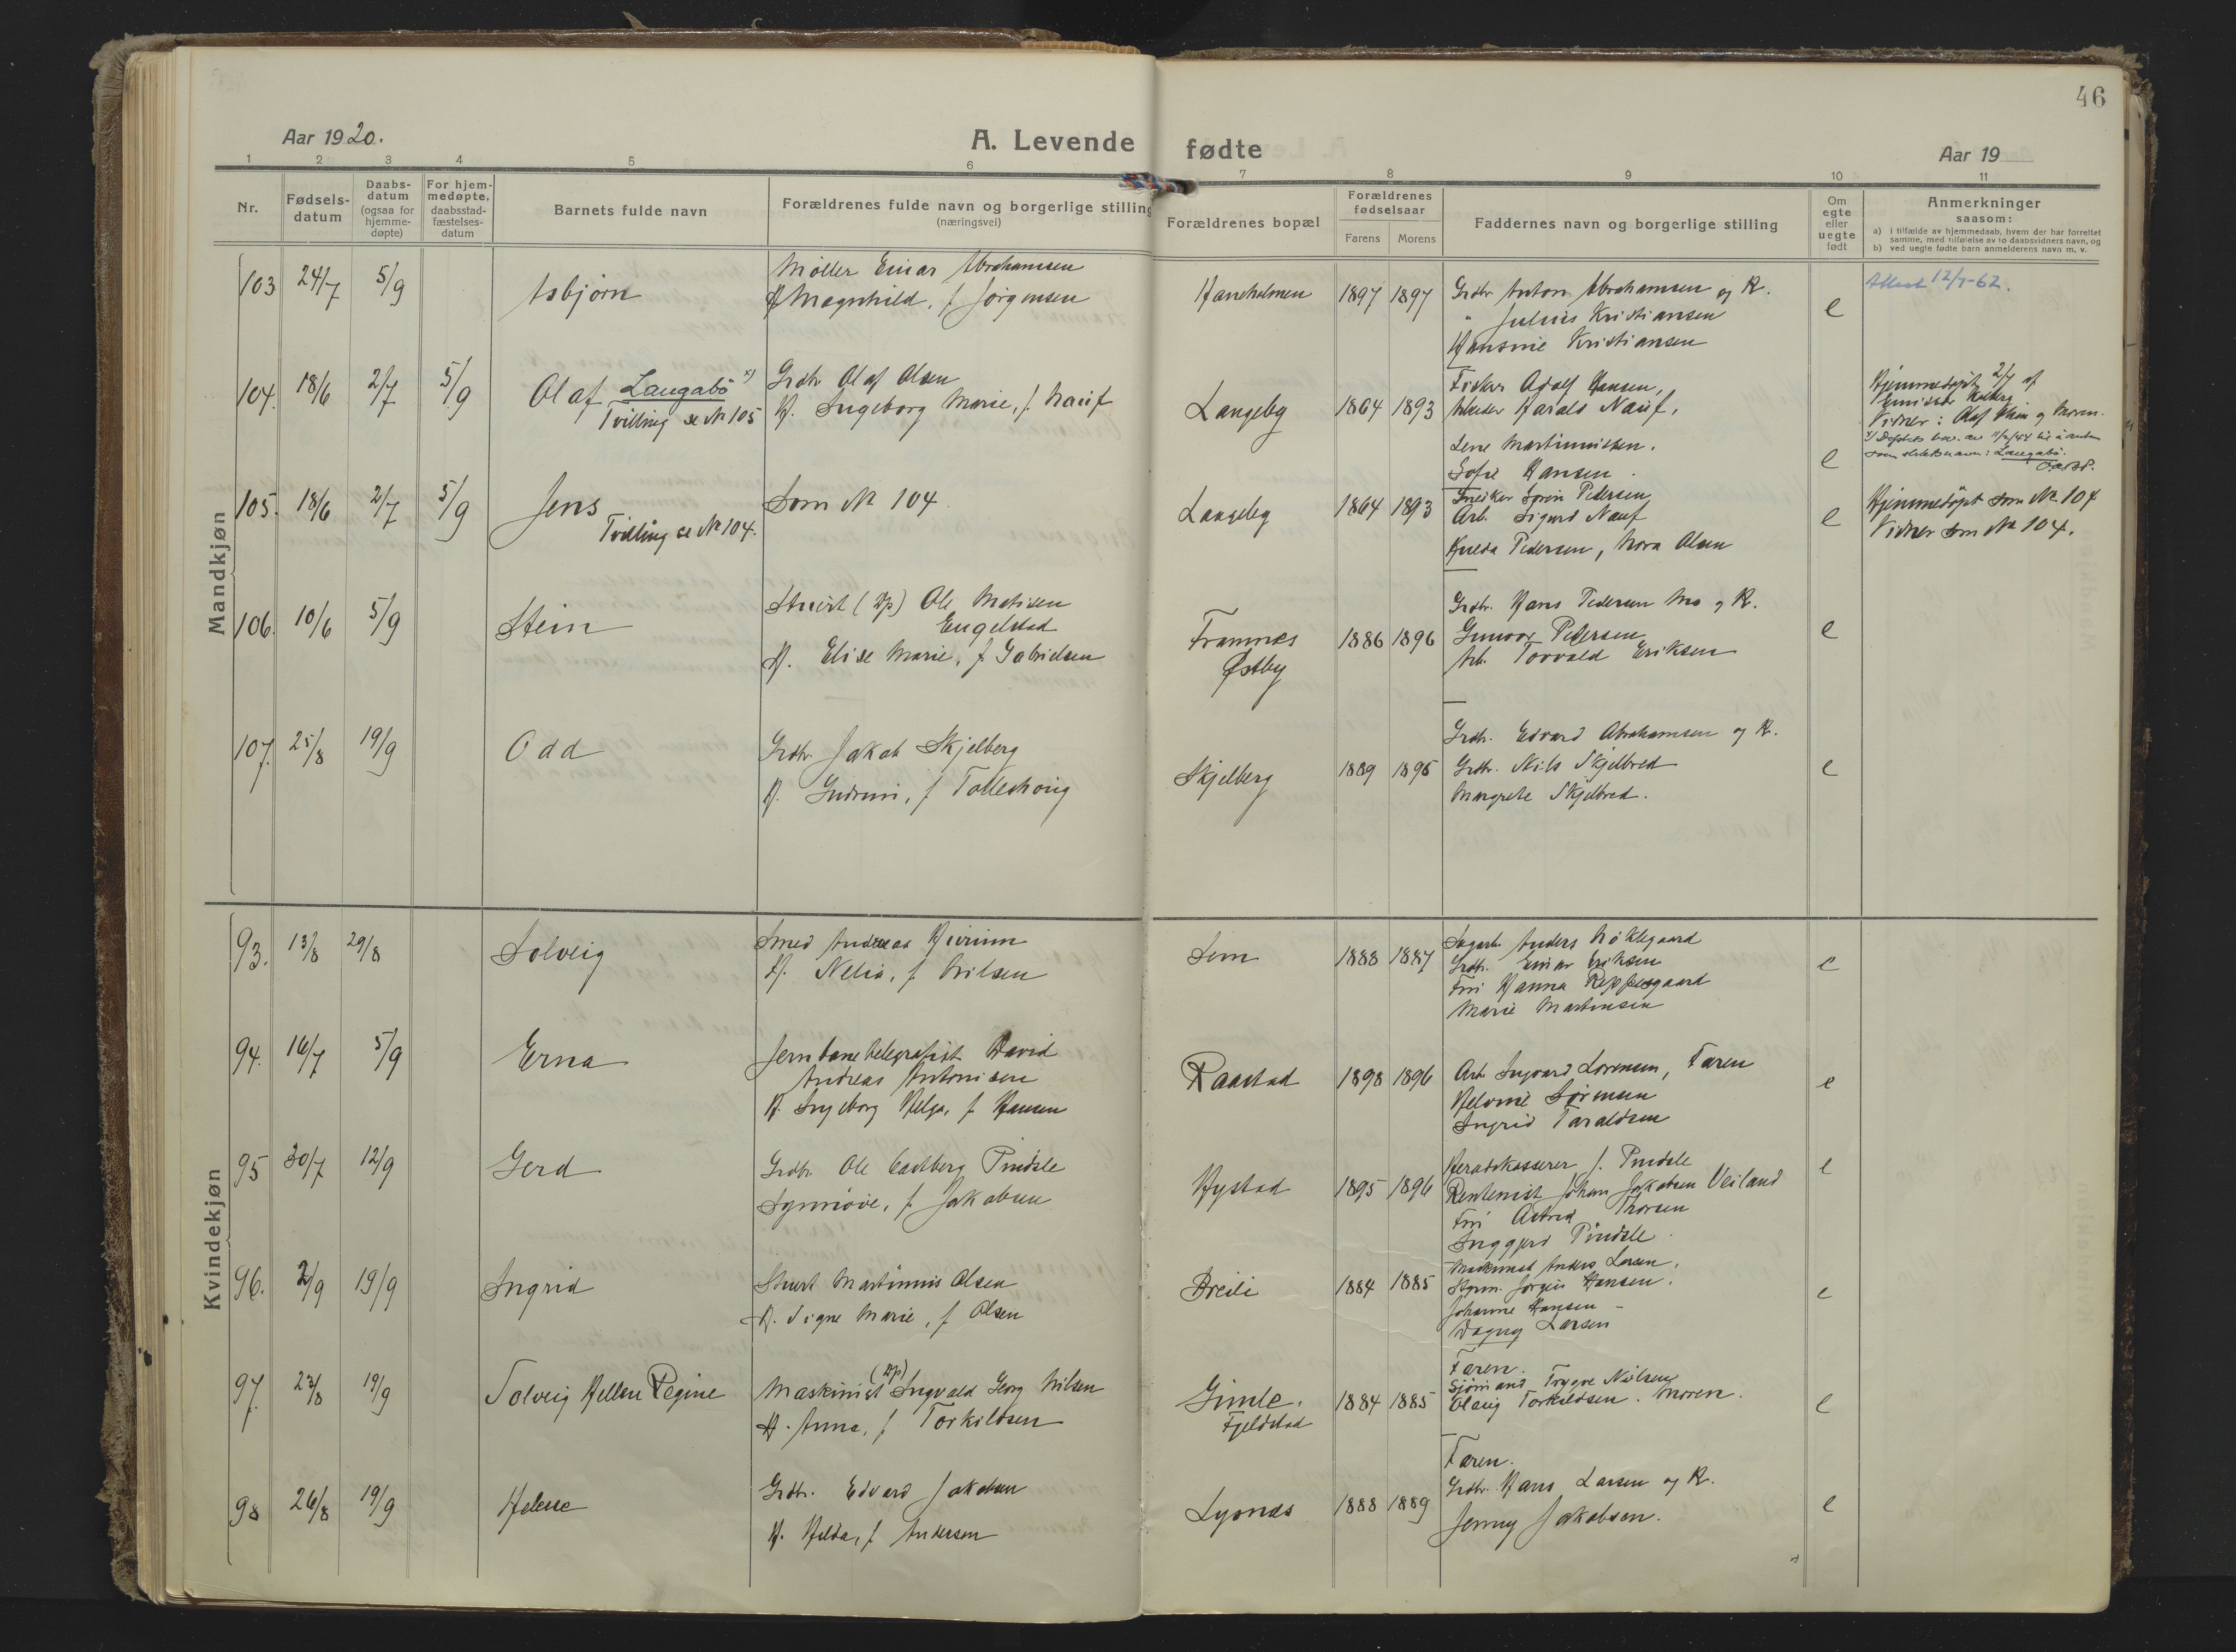 46
Aar 1920.
A. Levende fødte
Aar 19
1 2 3 4 5 6 7 8 9 10 11
Nr.
Fødsels-
datum
Daabs-
datum
(ogsaa for
hjemme-
døpte)
For hjem-
medøpte,
daabsstad-
fæstelses-
datum
Barnets fulde navn
Forældrenes fulde navn og borgerlige stilling
(næringsvei)
Forældrenes bopæl
Forældrenes
fødselsaar
Farens Morens
Faddernes navn og borgerlige stilling
Om
egte
eller
uegte
født
Anmerkninger
saasom:
a) i tilfælde av hjemmedaab, hvem der har forrettet
samme, med tilføielse av to daabsvidners navn, og
b) ved uegte fødte barn anmelderens navn m. v.
Mandkjøn
103 24/7 5/9 Asbjørn
Møller Einar Abrahamsen
H Magnhild, f Jørgensen
Haneholmen 1897 1897
Grdbr. Anton Abrahamsen og K.
" Julius Kristiansen
Hansine Kristiansen
e
Attest 12/7-62.
104. 18/6 2/7 5/9 Olaf Langabø x)
Tvilling se № 105
Grdbr Olaf Olsen
H. Ingeborg Marie, f. Nauf
Langeby 1864 1893
Fisker Adolf Hansen,
Arbeider Harald Nauf,
Lene Martinnissen.
Sofie Hansen.
e
Hjemmedøpt 2/7 af
Vidner: Olaf Olsen og Moren.
som slektsnavn: Langabø.
105. 18/6 2/7 5/9 Jens
Tvilling se № 104.
Som № 104
Langeby 1864 1893
Snedker Søren Pedersen
Arb. Sigurd Nauf
Hulda Pedersen, Nora Olsen
e
Hjemmedøpt som № 104
Vidner som № 104.
106. 10/6 5/9 Stein
Stuert (Hp) Ole Matisen
Engelstad
H. Elise Marie, f Gabrielsen
Framnes
Østby
1886 1896
Grdbr. Hans Pedersen Mo og K.
Gunvor Pedersen
Arb. Torvald Eriksen
e
107. 25/8 19/9 Odd
Grdbr. Jakob Skjelberg
H. Gudrun, f Tolleshaug
Skjelberg 1889 1895
Grdbr. Edvard Abrahamsen og K.
Grdbr. Nils Skjelbred
Margrete Skjelbred.
e
Kvindekjøn
93. 13/8 29/8 Solveig
Smed Andreas
H. Nelia, f. Nilsen
Sem 1888 1887
Sagarb. Anders Nøklegaard
Grdb. Einar Eriksen
Frk Hanna Reppesgaard
Marie Martinsen
e
94. 16/7 5/9 Erna
Jernbanetelegrafist David
Andreas Antonisen
H. Ingeborg Helga, f. Hansen
Raastad 1898 1896
Arb. Ingvard Lorensen, Faren
Helene Sørensen
Ingrid Taraldsen
e
95 30/7 12/9 Gerd
Grdbr. Ole Castberg Pindsle
Synnøve, f. Jakobsen
Hystad 1895 1896
Heradskasserer J. Pindsle
Rentenist Johan Jakobsen Veiland
Frk Astrid Thorsen
Inggjerd Pindsle.
e
96. 2/9 19/9 Ingrid
Stuert Martinius Olsen
H. Signe Marie, f Olsen
Breili 1884 1885
Maskinist Anders Larsen.
Styrm. Jørgen Hansen.
Johanne Hansen
Dagny Larsen
e
97. 23/8 19/9 Solveig Hellen Regine
(Hp)
Maskinist Ingvald Georg Nilsen
H. Anna, f Torkildsen
Gimle.
Fjeldstad
1884 1885
Faren.
Sjømand Trygve Nielsen
Olaug Torkildsen. Moren.
e
98 26/8 19/9 Helene
Grdbr. Edvard Jakobsen
H. Hilda, f. Andersen
Lysnæs 1888 1889
Faren.
Grdbr. Hans Larsen og K.
Jenny Jakobsen.
e